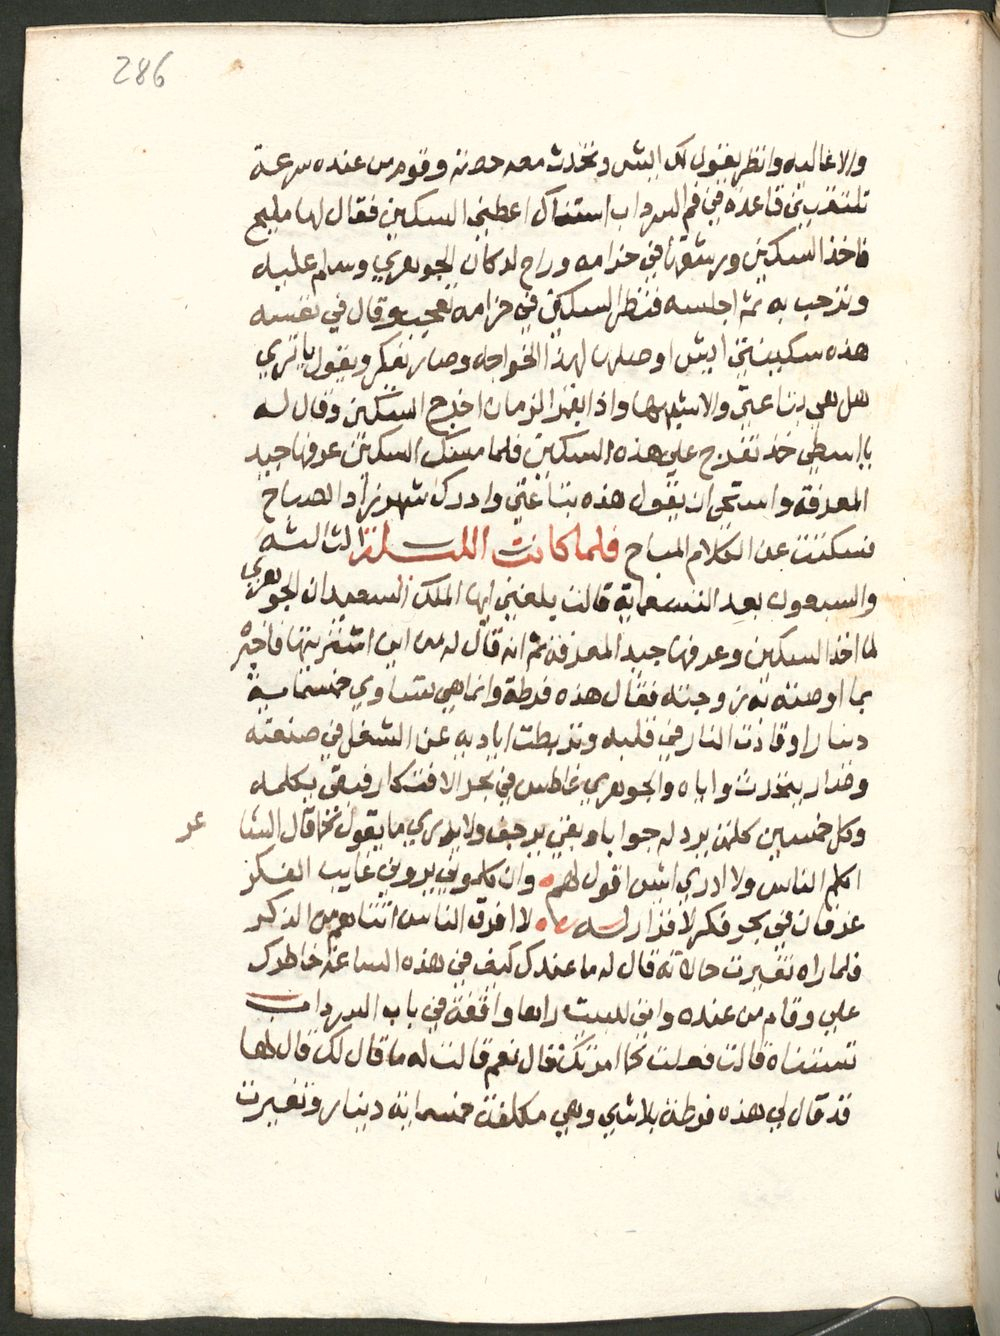 286
والا غاليه وانظر يقول لك ايش وتحدث معه حصته وقوم من عنده سرعة
تلتقيني قاعده في فم السرداب استناك اعطيني السكين فقال لها مليح
فاخذ السكين ورشقها في حزامه وراح لدكان الجوهري وسلم عليه
وترحب به ثم اجلسه فنظر السكين في حزامه تعجب وقال في نفسه
هذه سكينتي ايش اوصلها لهذا الخواجه وصار يفكر ويقول يا تري
هل هي بتاعتي والا شبهها واذا بقمر الزمان اخرج السكين وقال له
يا اسطي خذ تفرج علي هذه السكين فلما مسك السكين عرفها جيد
المعرفة واستحي ان يقول هذه بتاعتي وادرك شهرزاد الصباح
فسكتت عن الكلام المباح فلما كانت الليلة الثالثه
والسبعون بعد التسعماية قالت بلغني ايها الملك السعيد ان الجوهري
لما اخذ السكين وعرفها جيد المعرفة ثم انه قال له من اين اشتريتها فاخبره
بما اوصته به زوجته فقال هذه فرطة وانها هي تساوي خمسماية
دينارا وقادت النار في قلبه وتربطت اياديه عن الشغل في صنعته
وصار يتحدث واياه والجوهري غاطس في بحر الافتكار فبقي يكلمه
وكل خمسين كلمة يرد له جوابا وبقي يرجف ولا يدري ما يقول كما قال الشا
عر
اكلم الناس ولا ادري ايش اقول لهم وان كلموني يروني غايب الفكر
غرقان في بحر فكر لا قرار له لا افرق الناس انثاهم من الذكر
فلما راه تغيرت حالاته قال له ما عندك كيف في هذه الساعة خاطرك
علي وقام من عنده واتي للبيت راها واقفة في باب السرداب
تستناه قالت فعلت كما امرتك قال نعم قالت له ما قال لك قال لها
قد قال لي هذه فرطة بلاشي وهي مكلفة خمسماية دينار وتغيرت